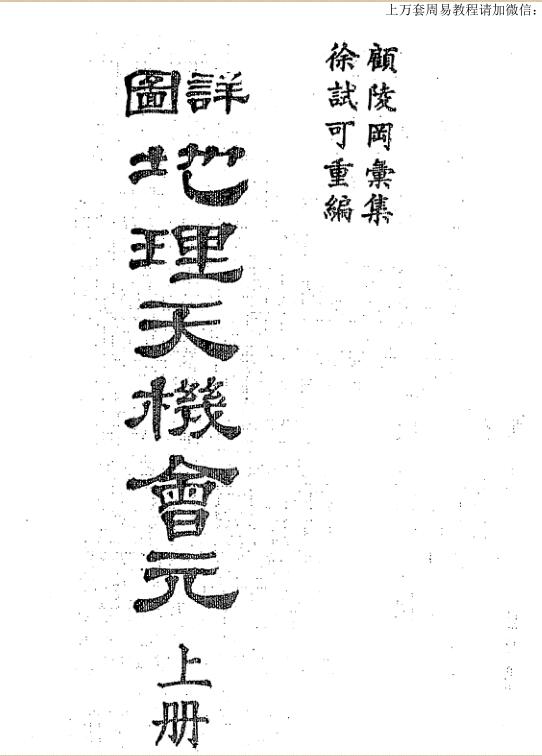 上万套周易教程请加微信:
顧陵岡彙集
徐試可重編
詳圖
地理天機會元
上册